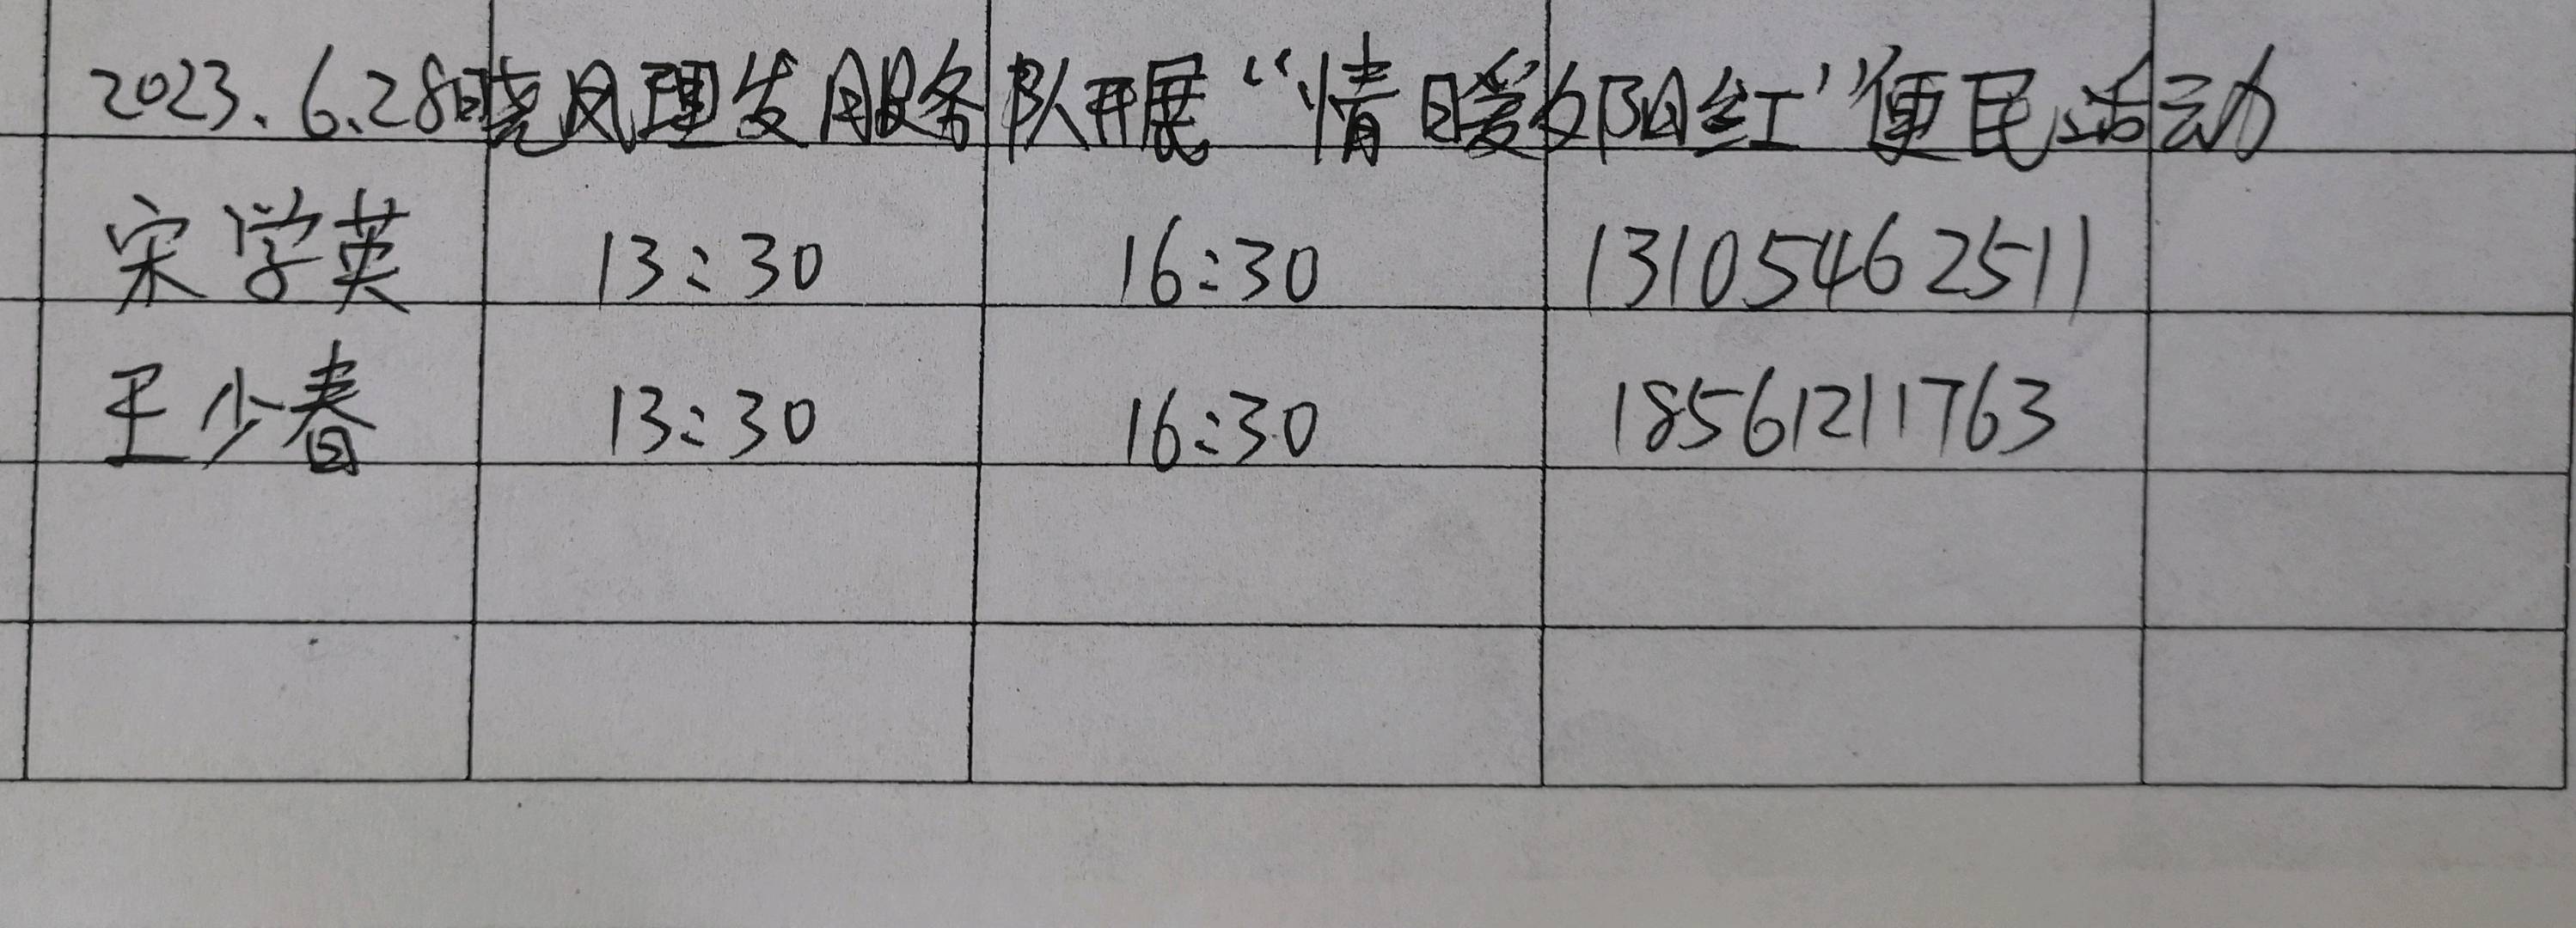 2023.6.28晓风理发服务队开展“情暖夕阳红”便民活动
宋学英 13:30 16:30 13105462511
王少春 13:30 16:30 18561211763